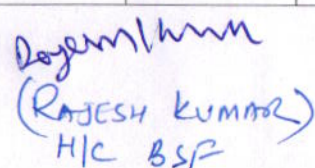 (RAJESH KUMAR)
H/C BSF